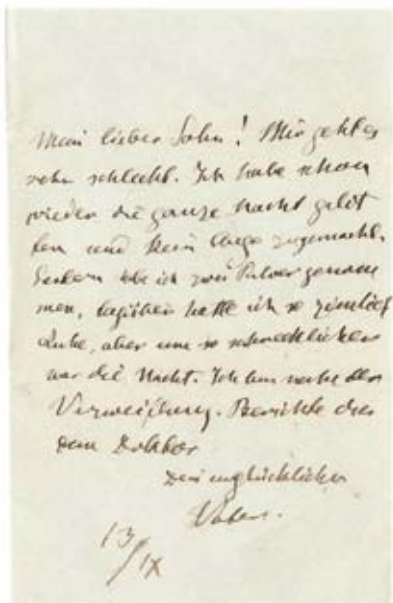 Mein lieber Sohn! Mir geht es
sehr schlecht. Ich habe schon
wieder die ganze Nacht gelit
ten und kein Auge zugemacht.
Gestern habe ich zwei Pulver genom
men, tagsüber hatte ich so ziemlich
Ruhe, aber um so schrecklicher
war die Nacht. Ich bin nahe der
Verzweiflung. Berichte dies
dem Doktor
Dein unglücklicher
Vater.
13/IX